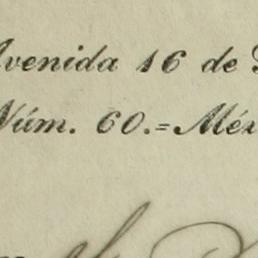 Avenida 16 de
Núm. 60.=Méx